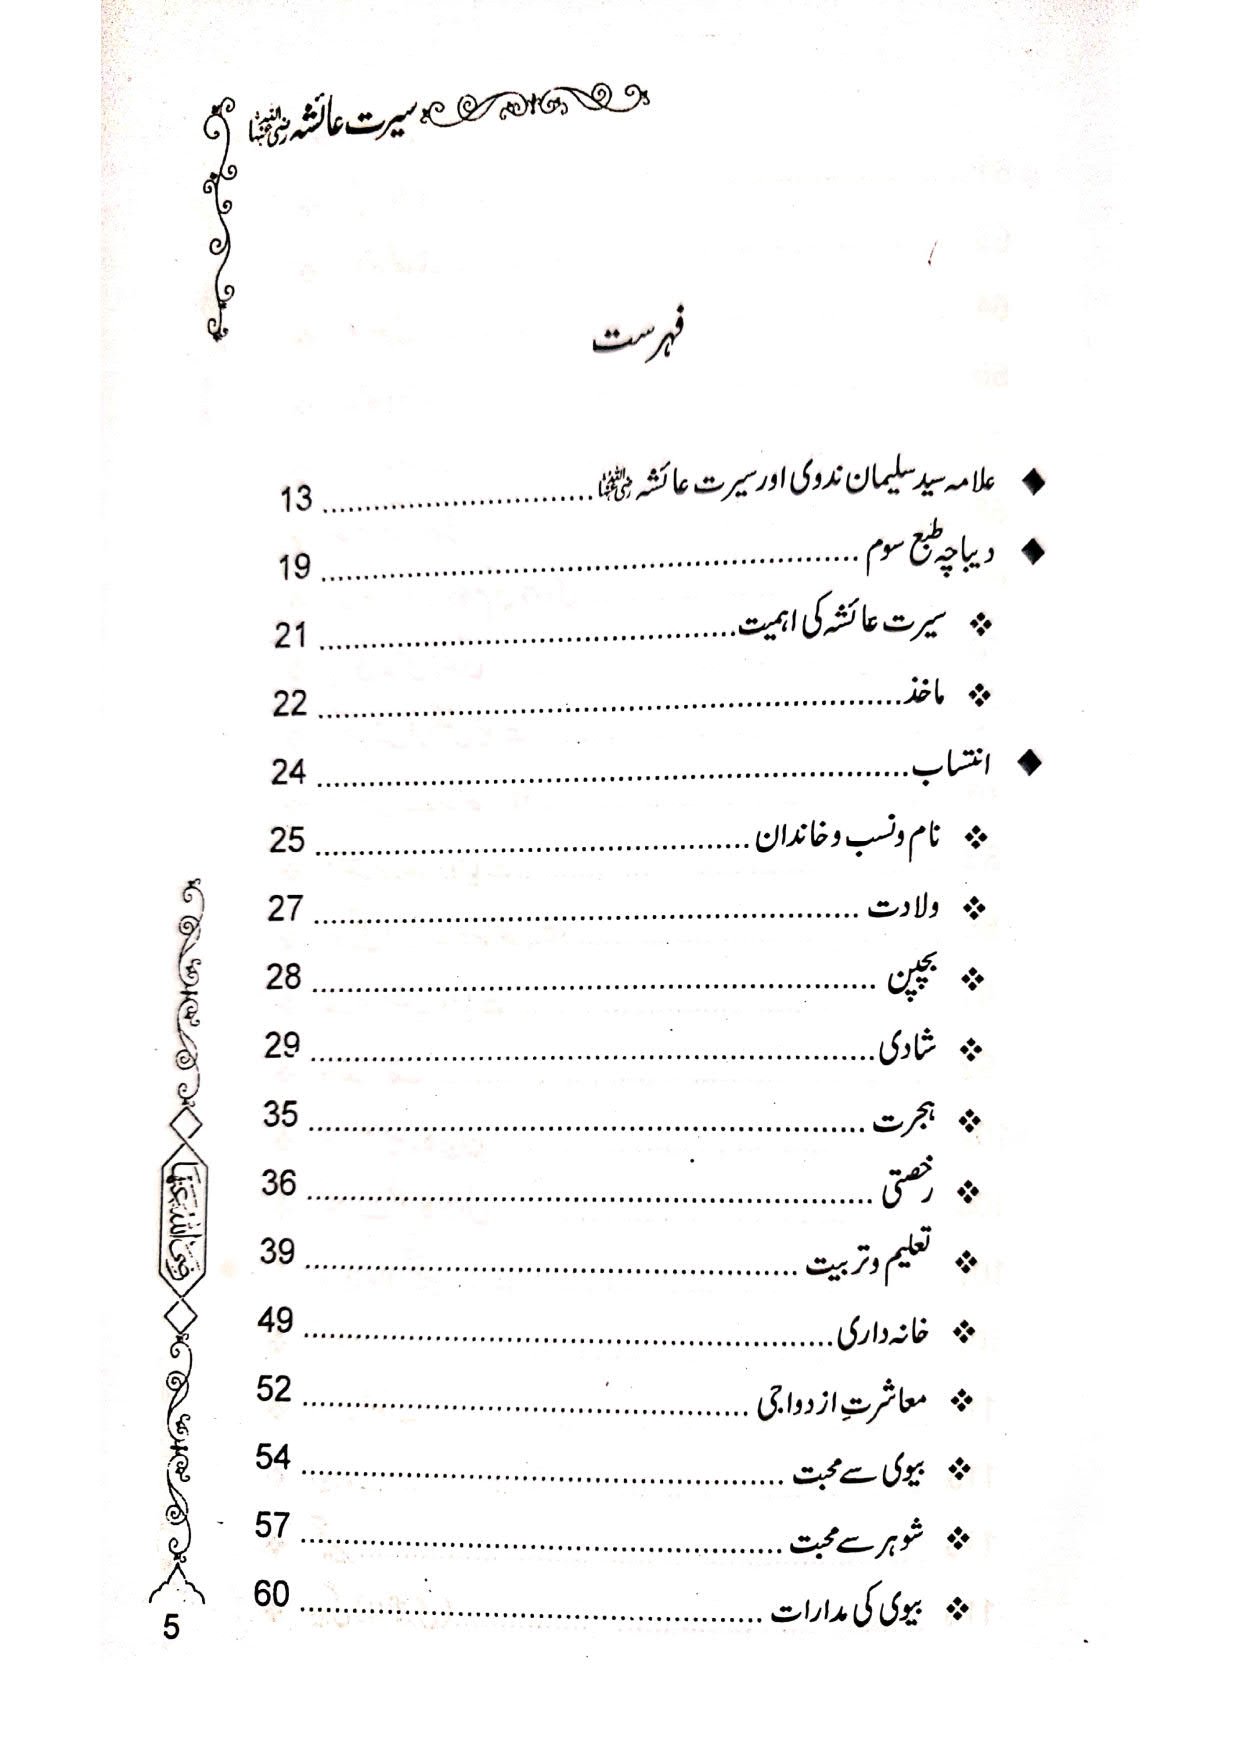 سیرت عائشہ رضی اللہ عنہا
فہرست
◆ علامہ سید سلیمان ندوی اور سیرت عائشہ رضی اللہ عنہا ........ 13
◆ دیباچہ طبع سوم ........ 19
❖ سیرت عائشہ کی اہمیت ........ 21
❖ ماخذ ........ 22
◆ انتساب ........ 24
❖ نام و نسب و خاندان ........ 25
❖ ولادت ........ 27
❖ بچپن ........ 28
❖ شادی ........ 29
❖ ہجرت ........ 35
❖ رخصتی ........ 36
❖ تعلیم و تربیت ........ 39
❖ خانہ داری ........ 49
❖ معاشرتِ ازدواجی ........ 52
❖ بیوی سے محبت ........ 54
❖ شوہر سے محبت ........ 57
❖ بیوی کی مدارات ........ 60
رضی اللہ عنہا
5